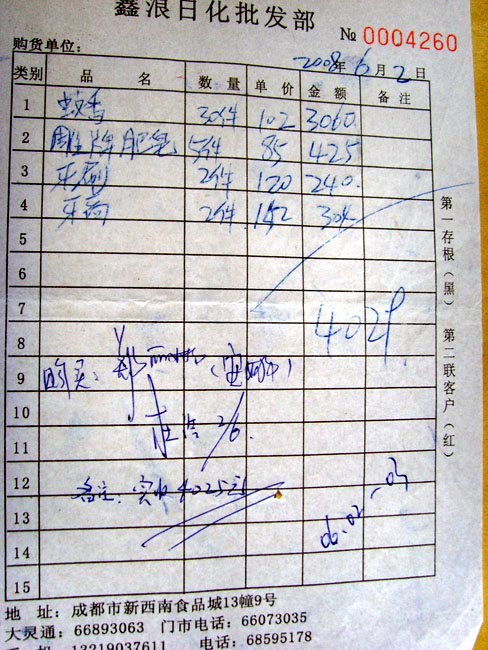 鑫浪日化批发部
№ 0004260
购货单位： 2008年6月2日
类别 品 名 数 量 单 价 金 额 备 注
1 蚊香 30件 102 3060.
2 雕牌肥皂 5件 85 425
3 牙刷 2件 120 240.
4 牙膏 2件 152 304.
5
6
7 4029
8
9 购买：
10
11 2/6.
12 备注：实收4025元
13
14
15
第一存根（黑） 第二联客户（红）
地 址：成都市新西南食品城13幢9号
大灵通：66893063 门市电话：66073035
手 机：13219037611 电话：68595178